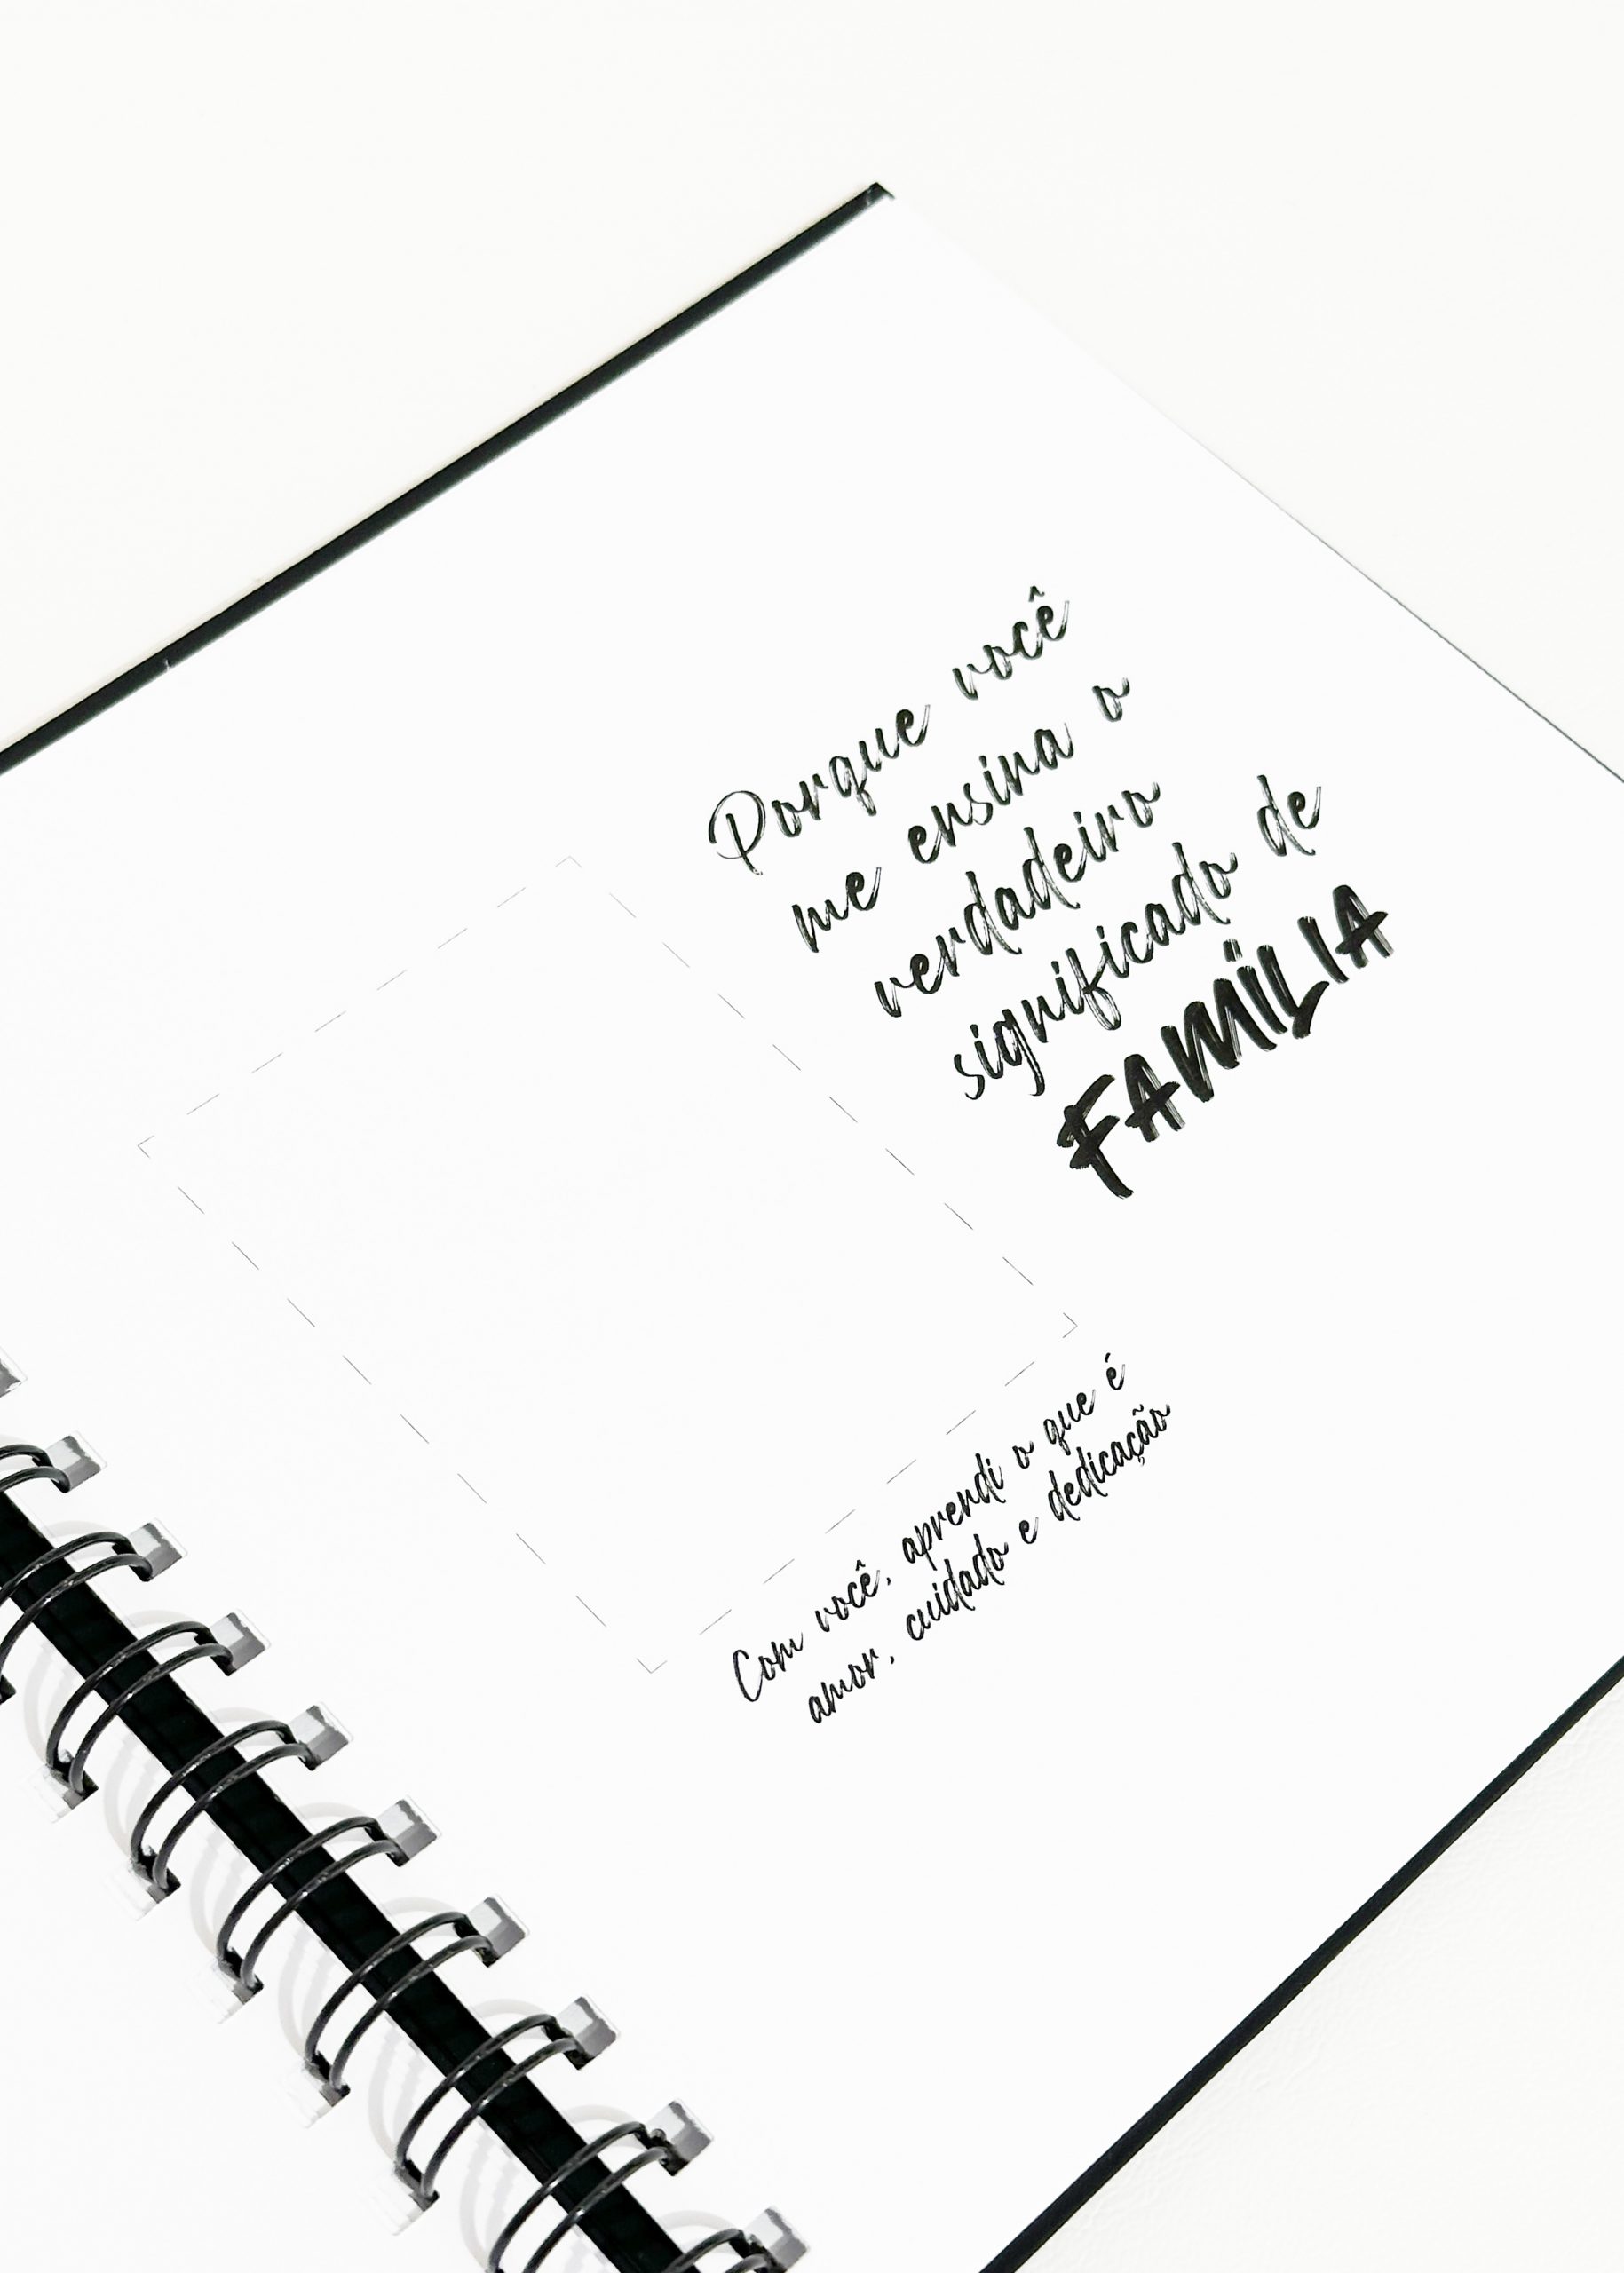 Porque você
me ensina o
verdadeiro
significado de
FAMÍLIA
Com você, aprendi o que é
amor, cuidado e dedicação